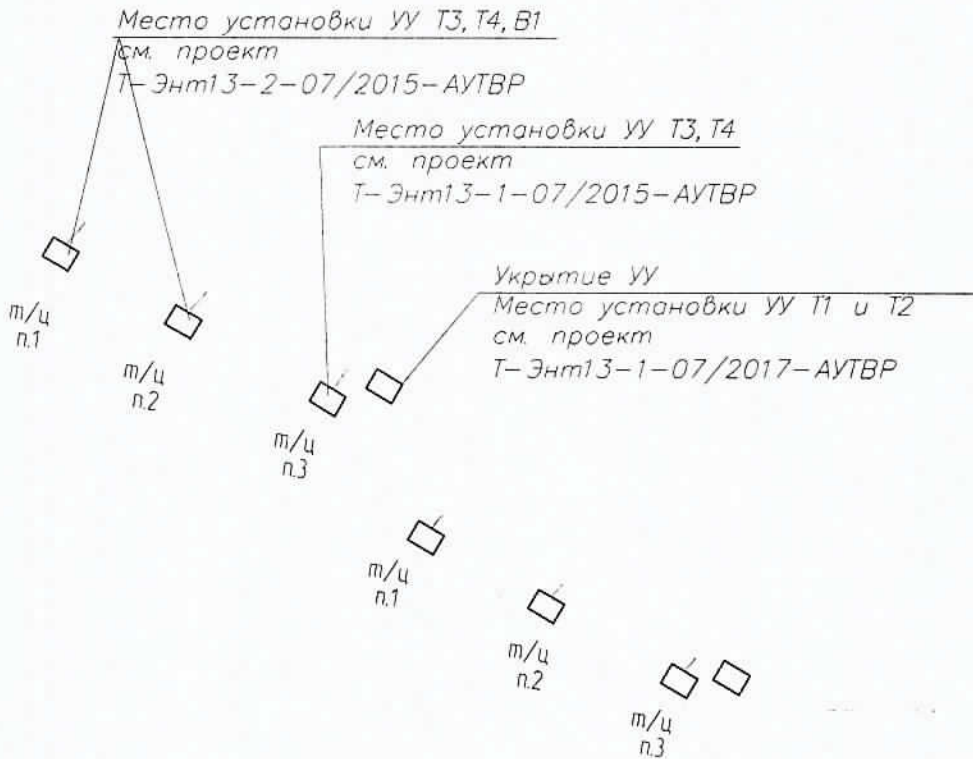 Место установки УУ Т3, Т4, В1
см. проект
Т-Энт13-2-07/2015-АУТВР
Место установки УУ Т3, Т4
см. проект
Т-Энт13-1-07/2015-АУТВР
Укрытие УУ
Место установки УУ Т1 и Т2
см. проект
Т-Энт13-1-07/2017-АУТВР
т/ц
п.1
т/ц
п.2
т/ц
п.3
т/ц
п.1
т/ц
п.2
т/ц
п.3